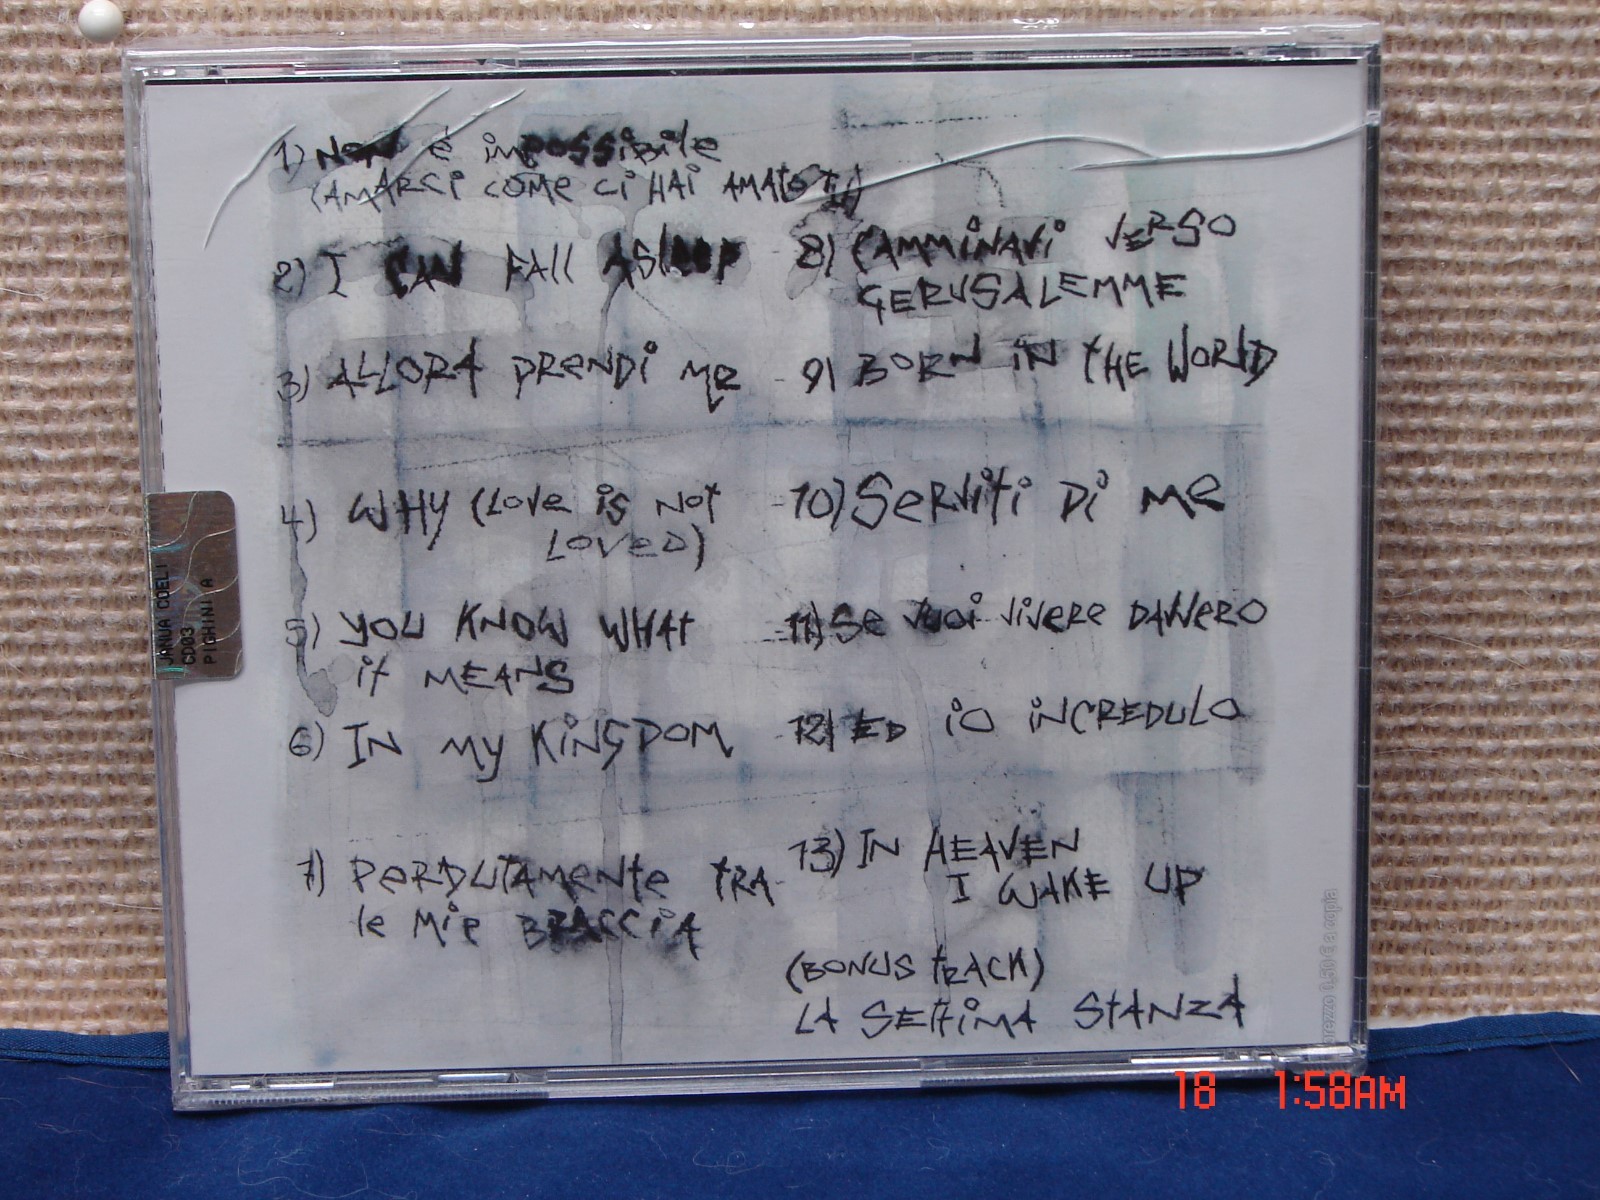 1) NON è impossibile
(AMARCI COME CI HAI AMATO TU)
2) I CAN FAll ASleep
3) ALLORA PRENDI Me
4) WHY (Love is Not
LOVeD)
5) YOU KNOW WHAt
it MEANS
6) IN My KiNGDOM
7) PERDUTAMeNte tRA
le Mie BRACCiA
8) CAMMiNAVi VERSO
GERUSALEMME
9) BORN iN tHE WORlD
10) SeRViti Di Me
11) Se vuoi vivere DAVVeRO
12) ED iO iNCREDULO
13) IN HEAVEN
I WAKE UP
(BONUS tRACK)
LA SEttiMA StANZA
JANUA COELI
CD03
PIGHINI A
prezzo 0,50 € a copia
18 1:58AM